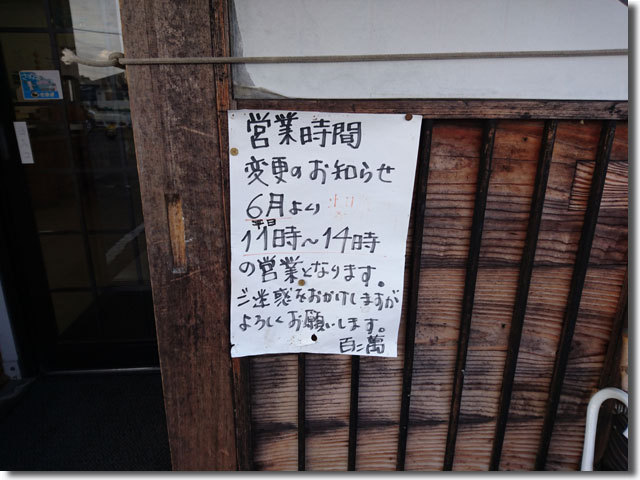 営業時間
変更のお知らせ
6月より
平日
11時～14時
の営業となります。
ご迷惑をおかけしますが
よろしくお願いします。
百二萬